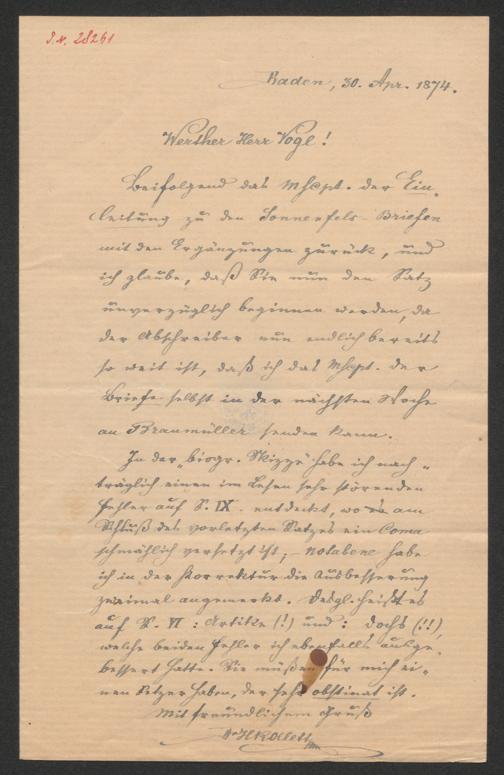 J.N. 28261
Baden, 30. Apr. 1874.
Werther Herr Vogl!
Beifolgend das Mscpt. der Ein-
leitung zu den Sonnenfels-Briefen
mit den Ergänzungen zurück, und
ich glaube, daß Sie nun den Satz
unverzüglich beginnen werden, da
der Abschreiber nun endlich bereits
so weit ist, daß ich das Mscpt. der
Briefe selbst in der nächsten Woche
an Braumüller senden kann.
In der „biogr. Skizze“ habe ich nach-
träglich einen im Lesen sehr störenden
Fehler auf S. IX. entdeckt, wo am
Schluß des vorletzten Satzes ein Coma
schmählich versetzt ist; notabene habe
ich in der Korrektur die Ausbesserung
zweimal angemerkt. Desgl. heißt es
auf S. VI: Artitze (!) und: dochs (!!),
welche beiden Fehler ich ebenfalls ausge-
bessert hatte. Sie müßen für mich ei-
nen Setzer haben, der sehr obstinat ist.
Mit freundlichem Gruß